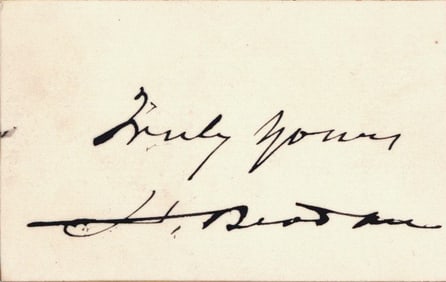 Truly yours
H. Berdan